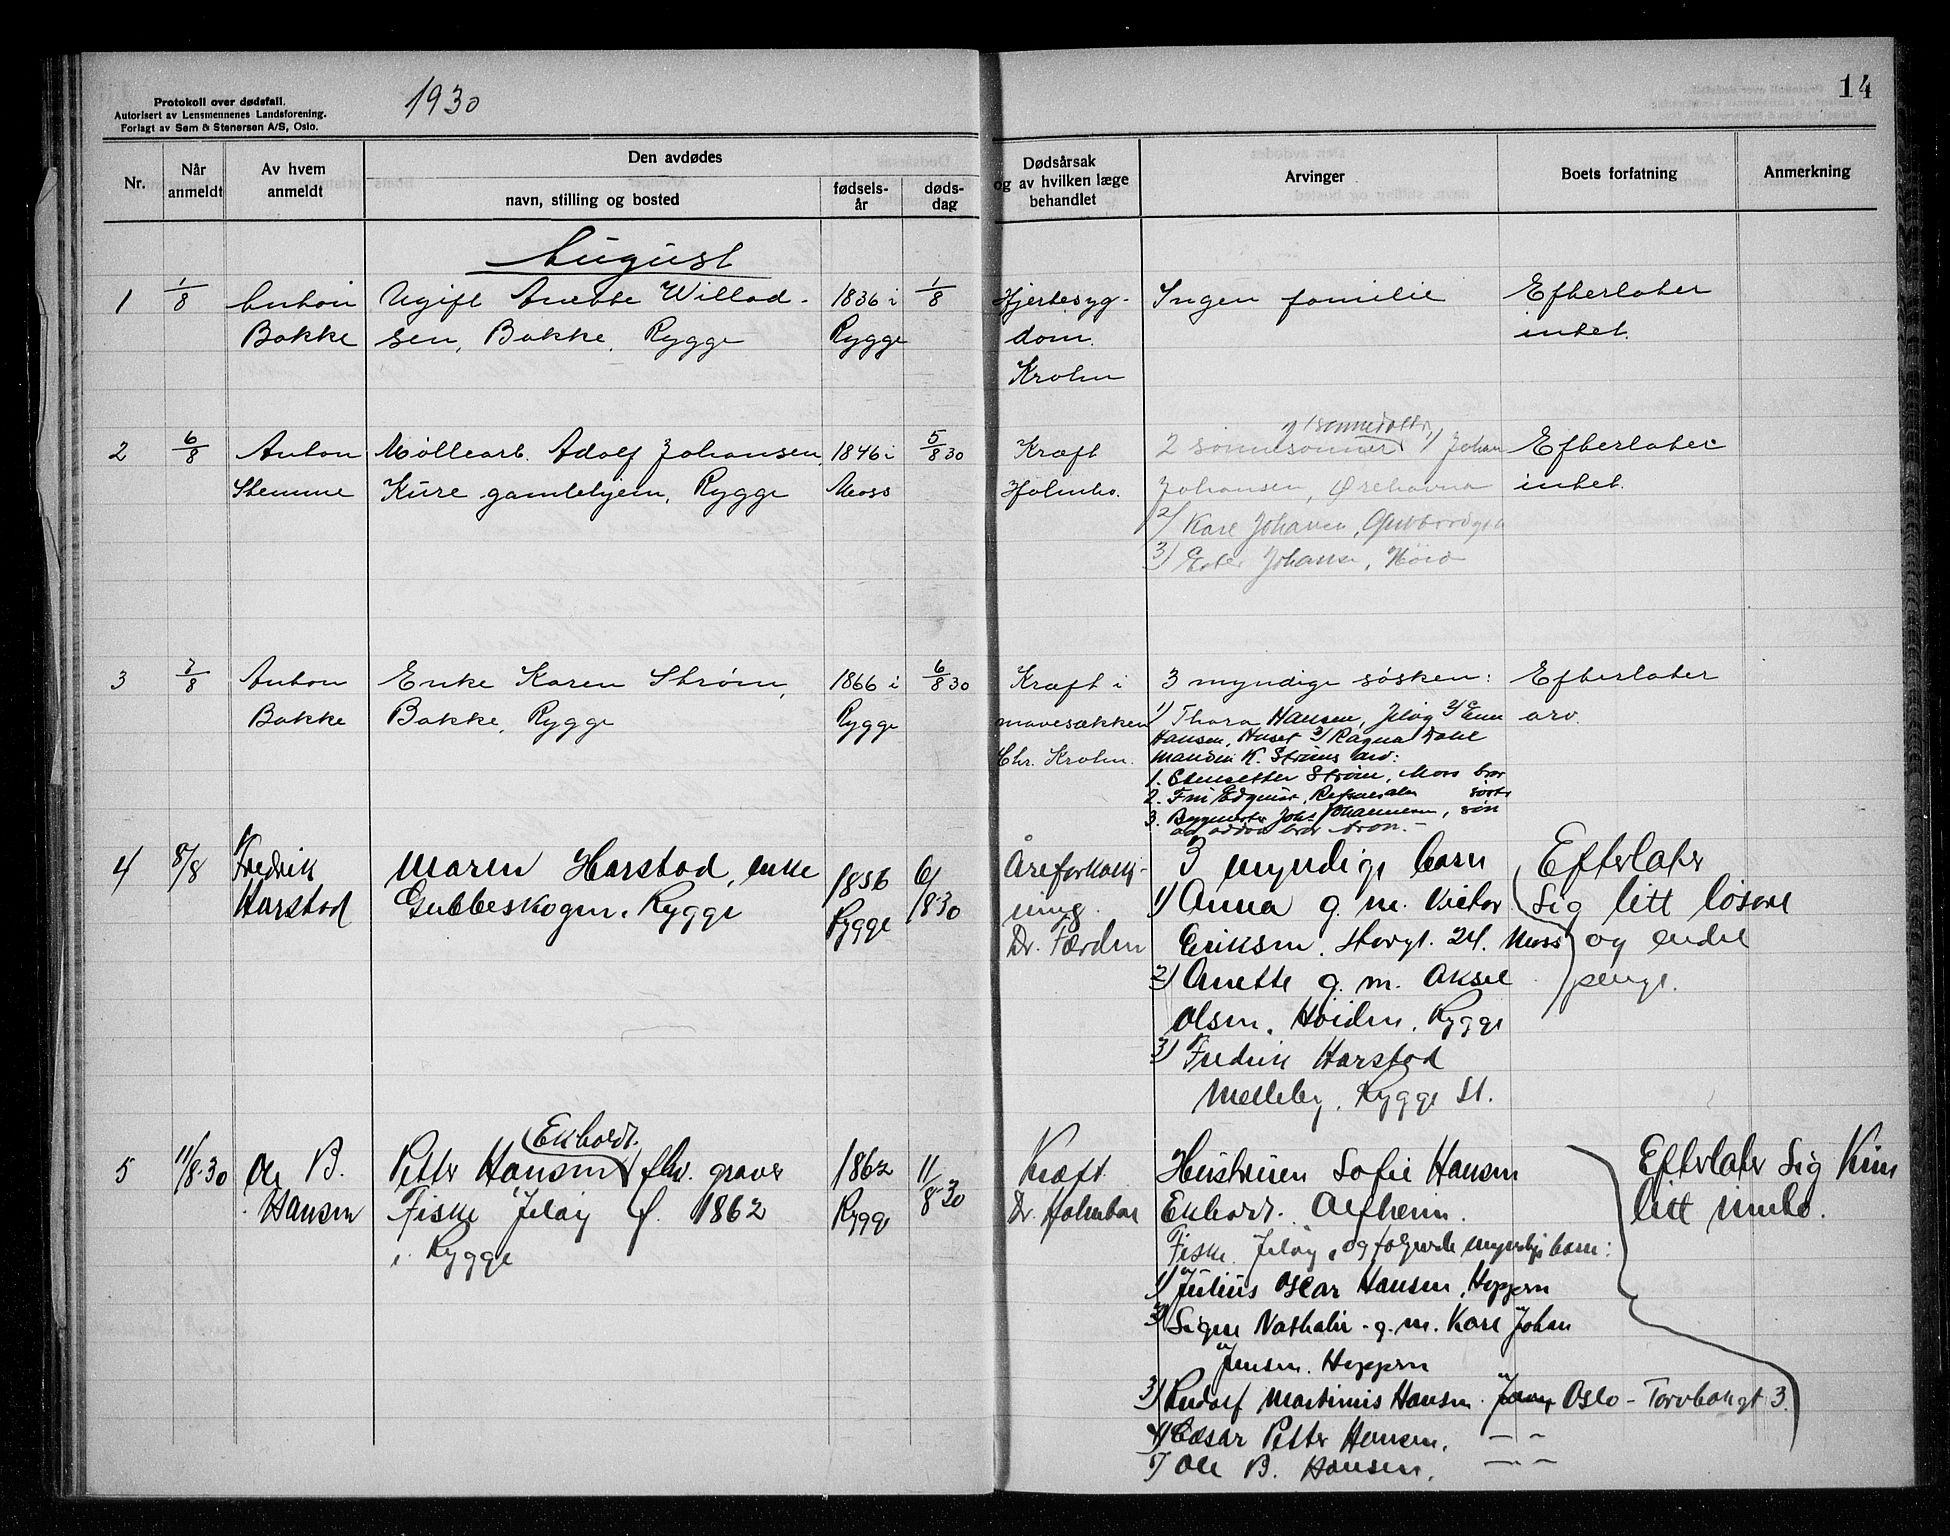 Protokoll over dødsfall.
Autorisert av Lensmennenes Landsforening.
Forlagt av Sem & Stenersen A/S, Oslo.
1930
14
Nr.
Når anmeldt
Av hvem anmeldt
Den avdødes
navn, stilling og bosted
fødsels-år
døds-dag
Dødsårsak og av hvilken læge behandlet
Arvinger
Boets forfatning
Anmerkning
August
1 1/8 Anton Ugift Anette Willad- 1836 i 1/8 Hjertesyg- Ingen familie Efterlater
Bakke sen, Bakke, Rygge Rygge dom. intet.
Krohn
2 6/8 Anton Møllearb. Adolf Johansen, 1846 i 5/8 30 Kræft 2 sønnesønner 1 sønnedatter 1/ Johan Efterlater
Stemme Kure gamlehjem, Rygge Moss Holmbo. Johansen, Ørehavna intet.
2/ Kare Johansen,
3/ Ester Johansen,
3 7/8 Anton Enke Karen Strøm, 1866 i 6/8 30 Kræft i 3 myndige søsken: Efterlater
Bakke Bakke, Rygge Rygge mavesækken 1/ Thora Hansen, Jeløy 2/ arv.
Hansen, Huset 3/ Ragna
Chr. Krohn. Manden K. Strøms arv:
1. Strøm, Moss bror
2. Fru søster
3. Bygmester Johs Johannesen, søn
av bror
4 8/8 Fredrik Maren Harstad, enke 1856 6/8 30 Åreforkalk- 3 myndige barn Efterlater
Harstad Gubbeskogen, Rygge Rygge ning. 1/ Anna g. m. Victor sig litt løsøre
Dr. Færden Eriksen, Storgt. 24. Moss og endel
2/ Anette g. m. Aksel penge.
Olsen, Høiden, Rygge
3/ Fredrik Harstad
Melleby, Rygge St.
Ekholdt.
5 11/8.30 Ole B. Petter Hansen fhv. graver 1862 11/8 30 Kræft. Hustruen Sofie Hansen Efterlater sig kun
Hansen Fiske Jeløy f. 1862 Rygge Dr. Holmboe Ekholdt. Alfheim. litt innbo.
i Rygge Fiske. Jeløy, og følgende myndige barn:
1/ Julius Oscar Hansen, Hoppern
2/ Signe Nathalie g. m. Karl Johan
Jensen. Hoppern
3/ Rudolf Martinius Hansen. Oslo - Torvbakgt 3.
4/ Edsar Petter Hansen. — „ —
5/ Ole B. Hansen. — „ —